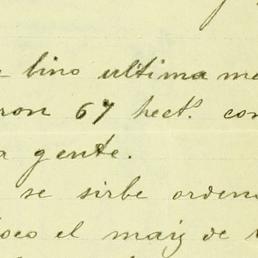 bino ultima me
ron 67 hect.s con
a gente.
se sirbe ordena
oco el maiz de